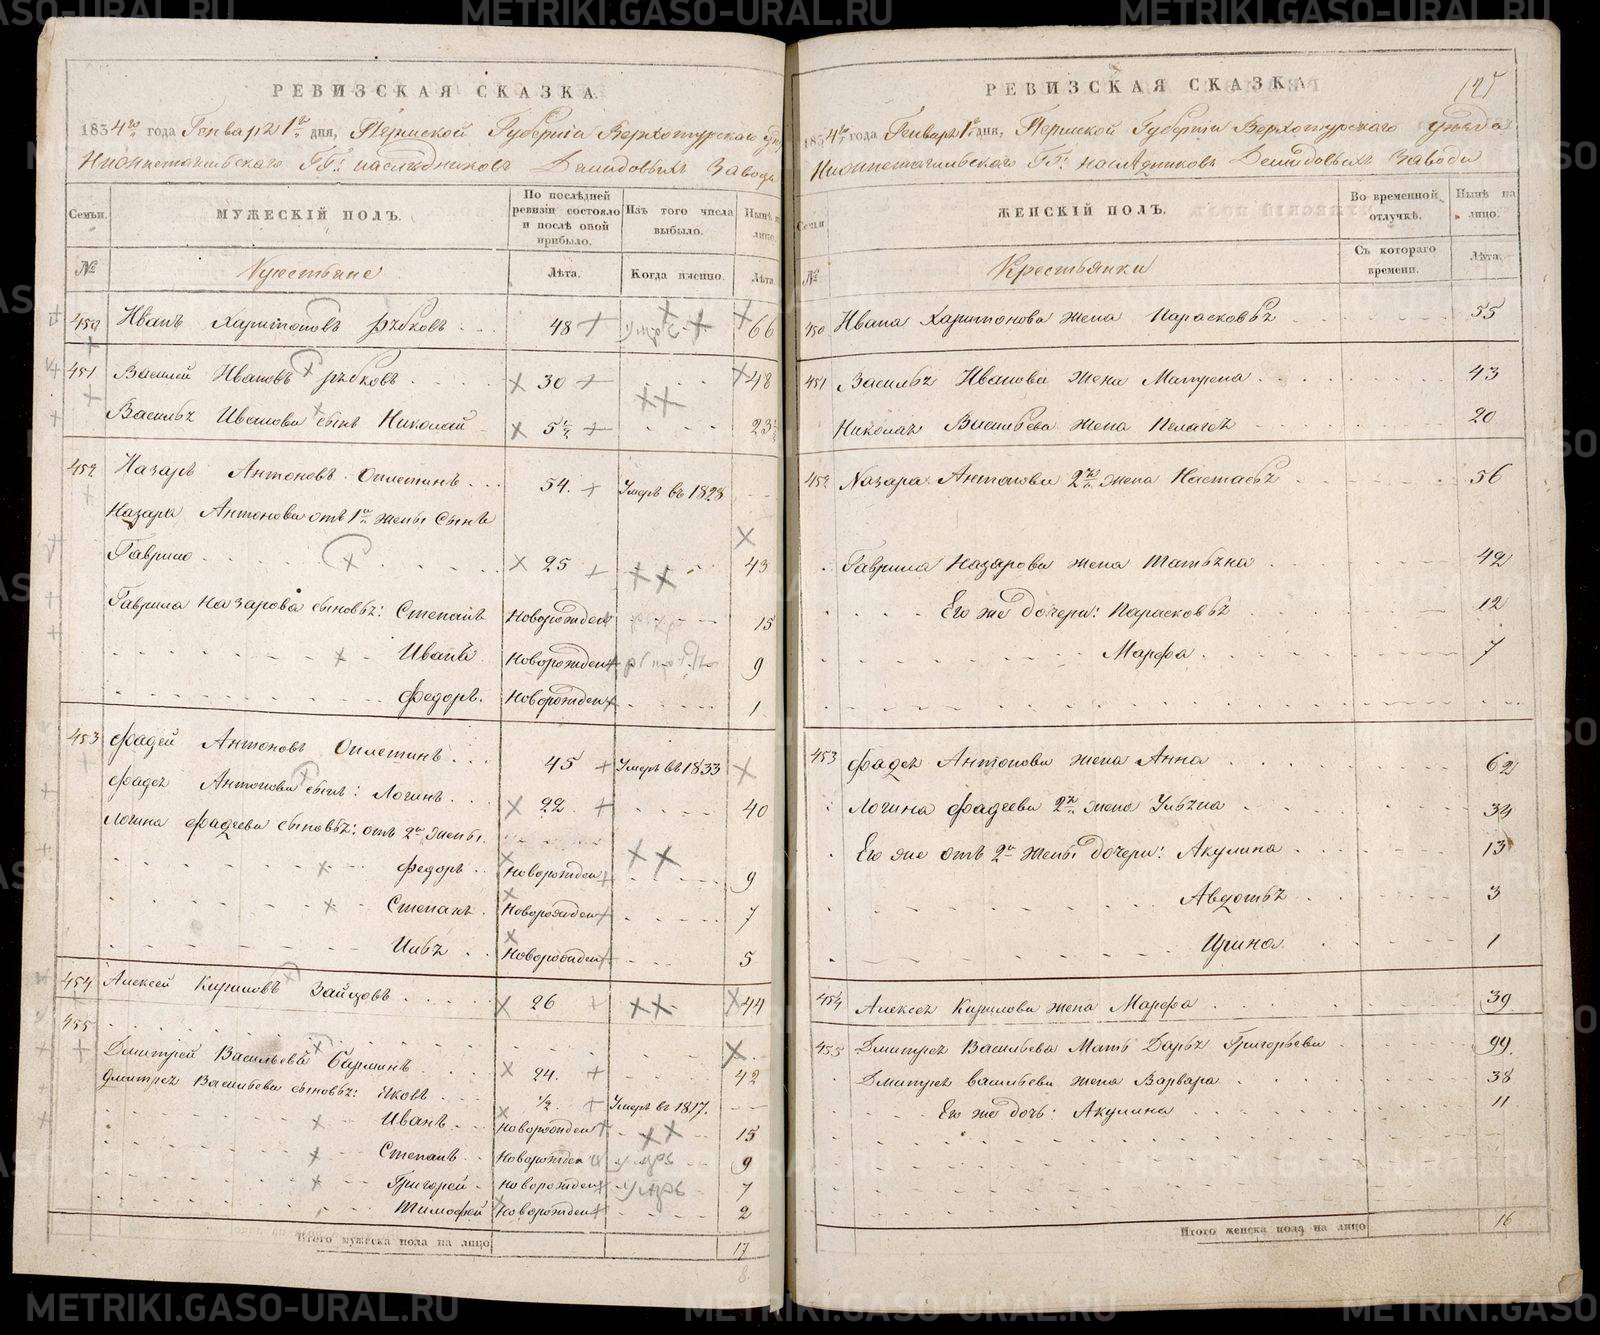 METRIKI.GASO-URAL.RU
РЕВИЗСКАЯ СКАЗКА.
1834го года Генваря 1го дня, Пермской Губернiи Верхотурскаго
Нижнетагильскаго ГГ: наслѣдниковъ Демидовыхъ Завода
Семьи. МУЖЕСКIЙ ПОЛЪ. По послѣдней ревизiи состояло и послѣ оной прибыло. Изъ того числа выбыло. Нынѣ на лицо.
№ Крестьяне Лѣта. Когда именно. Лѣта
450 Иванъ Харитоновъ Рѣбковъ 48 66
451 Василей Ивановъ Рѣбковъ 30 48
Васильѣ Иванова сынъ Николай 5½ 23½
452 Назаръ Антоновъ Оплетинъ 54. Умеръ въ 1828
Назара Антонова отъ 1й жены сынъ
Гаврило 25 43
Гаврила Назарова сыновьѣ: Степанъ Новорожден 15
Иванъ Новорожден 9
Федоръ. Новорожден 1
453 Фадей Антоновъ Оплетинъ 45 Умеръ въ 1833
Фадеѣ Антонова сынъ: Логинъ 22 40
Логина Фадеева сыновьѣ: отъ 2й жены
Федоръ Новорожден 9
Степанъ Новорожден 7
Ильѣ Новорожден 5
454 Алексей Кириловъ Зайцовъ 26 44
455
Дмитрей Васильевъ 24. 42
Дмитреѣ Васильева сыновьѣ: Яковъ ½ Умеръ въ 1817.
Иванъ Новорожден 15
Степанъ Новорожден умеръ 9
Григорей Новорожден умеръ 7
Тимофей Новорожден 2
Итого мужеска пола на лицо 17
8
125
РЕВИЗСКАЯ СКАЗКА
1834го года Генваря 1го дня, Пермской Губернiи Верхотурскаго уѣзда
Нижнетагильскаго ГГ: наслѣдниковъ Демидовыхъ Завода
Семьи ЖЕНСКIЙ ПОЛЪ. Во временной отлучкѣ. Нынѣ на лицо.
№ Крестьянки Съ котораго времени. Лѣта.
450 Ивана Харитонова жена Парасковьѣ 55
451 Васильѣ Иванова жена Матрена 43
Николаѣ Васильева жена Пелагеѣ 20
452 Назара Антонова 2я жена Настасьѣ 56
Гаврила Назарова жена Татьѣна 42
Его же дочери: Парасковьѣ 12
Марфа 7
453 Фадеѣ Антонова жена Анна 62
Логина Фадеева 2я жена Ульѣна 34
Его же отъ 2й жены дочери: Акулина 13
Авдотьѣ 3
Ирина 1
454 Алексеѣ Кирилова жена Марфа 39
455 Дмитреѣ Васильева Мать Дарьѣ Григорьева 99.
Дмитреѣ Васильева жена Варвара 38
Его же дочь: Акулина 11
Итого женска пола на лицо 16
METRIKI.GASO-URAL.RU